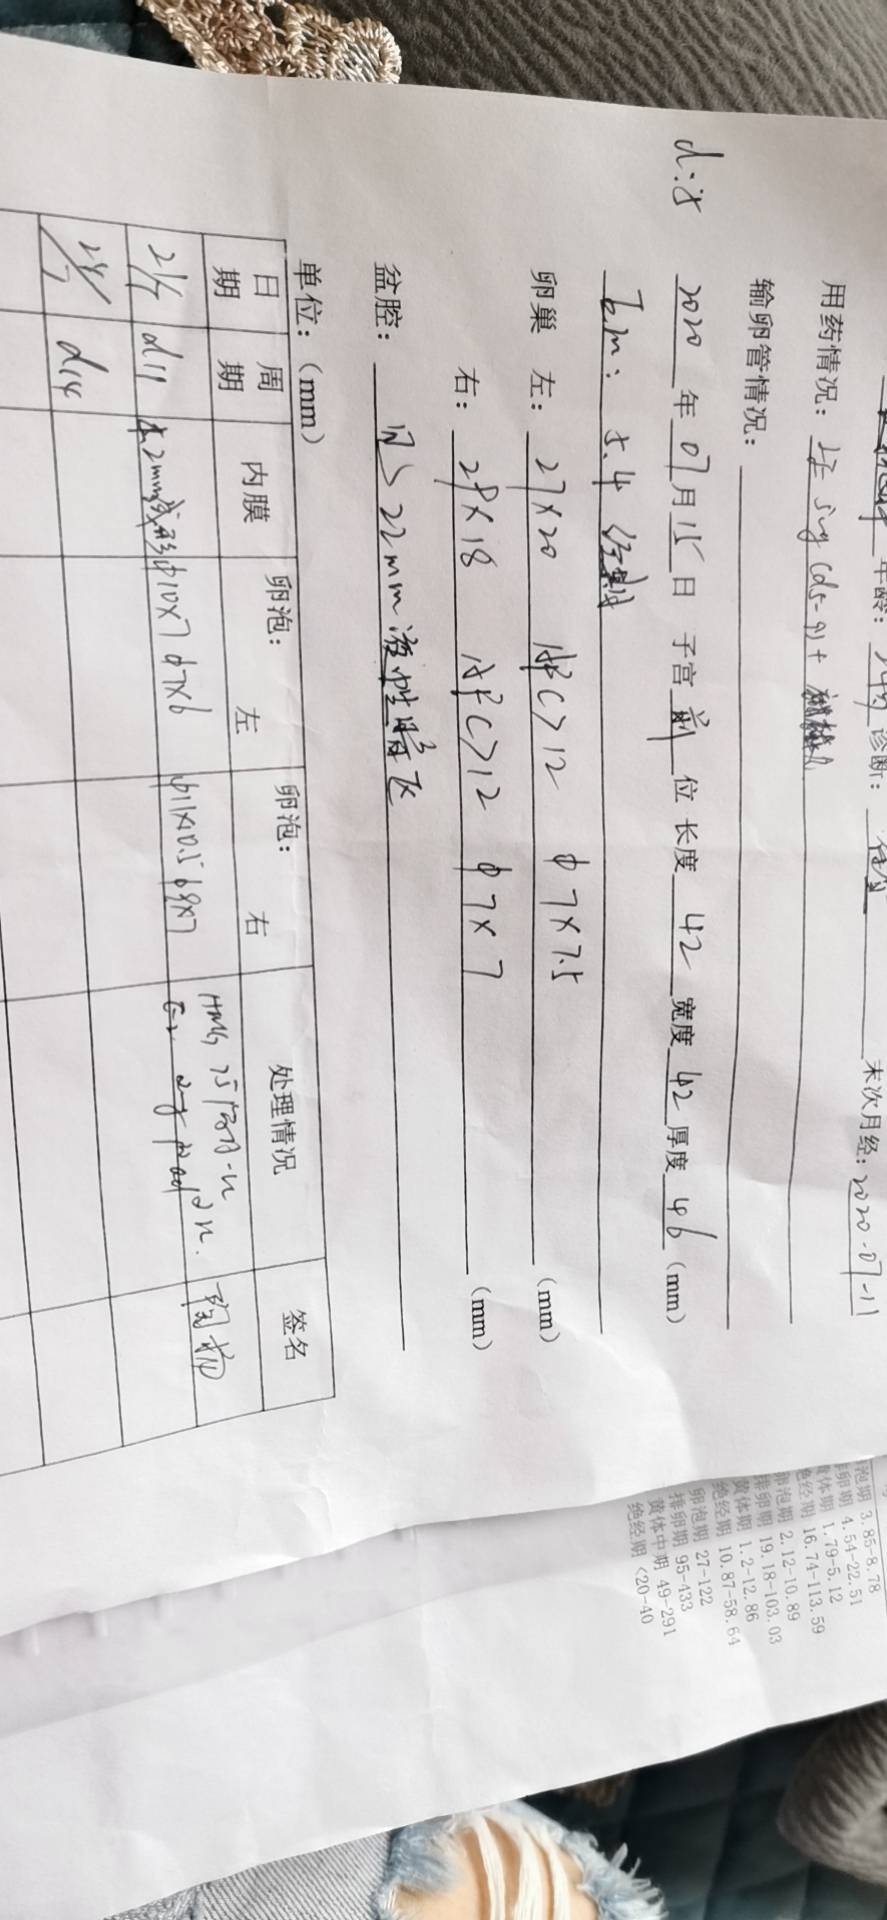 年龄： 诊断： 末次月经：2020-07-11
用药情况：LE 5mg (d5-9)+
输卵管情况：
d:5 2020年07月15日 子宫前位 长度 42 宽度 42 厚度 46 (mm)
Em： 5.4
卵巢 左：27×20 AFC>12 φ7×7.5 (mm)
右：29×18 AFC>12 φ7×7 (mm)
盆腔：见 22mm 液性暗区
单位：(mm)
日期 周期 内膜 卵泡：左 卵泡：右 处理情况 签名
21/7 d11 φ10×7 φ7×6 φ11×10.5 φ8×7 HMG 75
24/7 d14
泡期 3.85-8.78
卵期 4.54-22.51
体期 1.79-5.12
绝经期 16.74-113.59
卵泡期 2.12-10.89
排卵期 19.18-103.03
黄体期 1.2-12.86
绝经期 10.87-58.64
卵泡期 27-122
排卵期 95-433
黄体中期 49-291
绝经期 <20-40